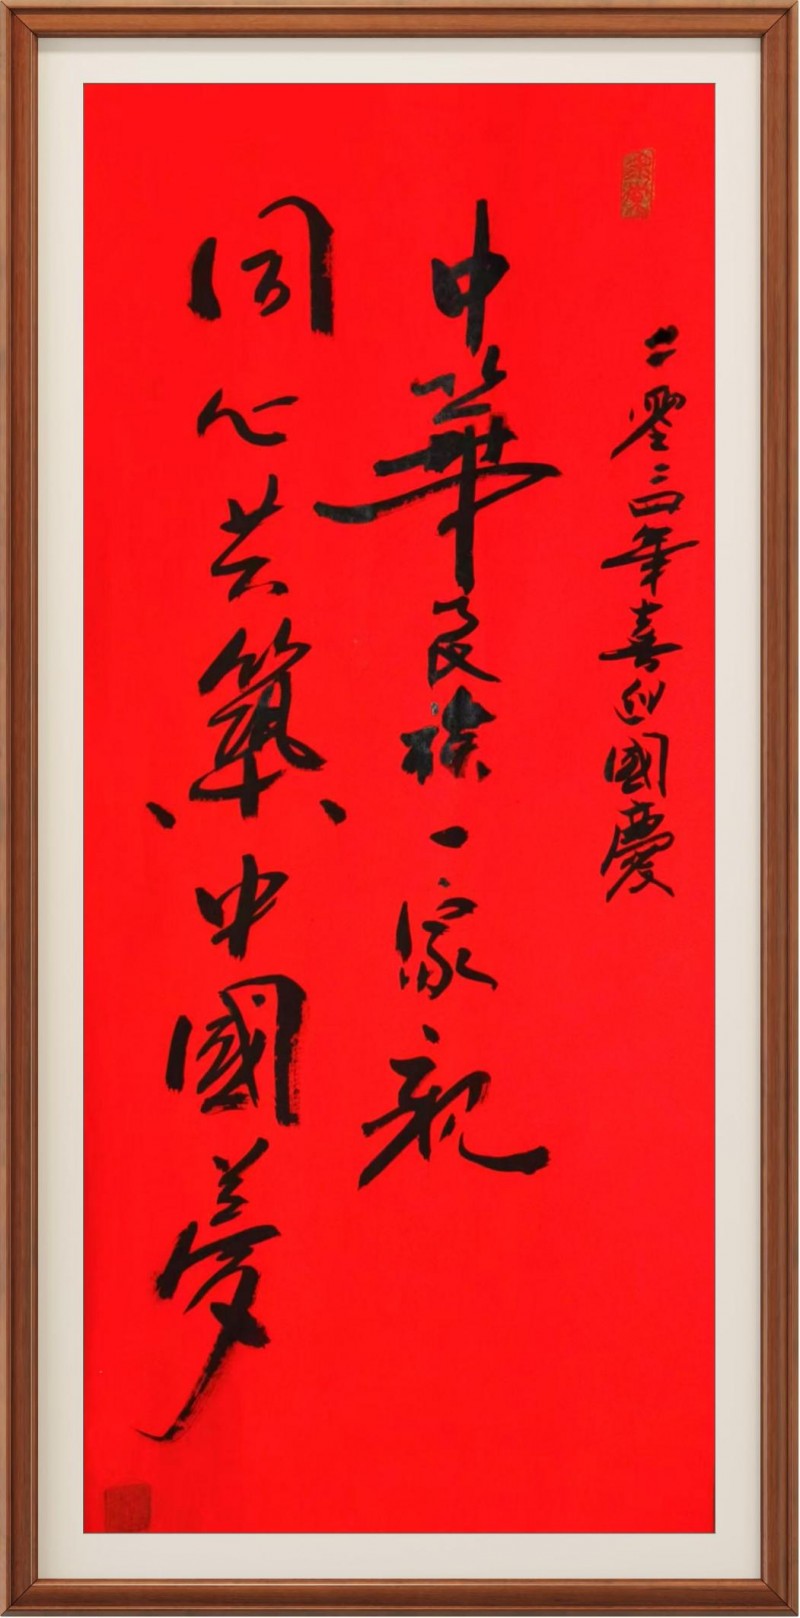 二零二四年喜迎國慶
中華民族一家親
同心共築中國夢